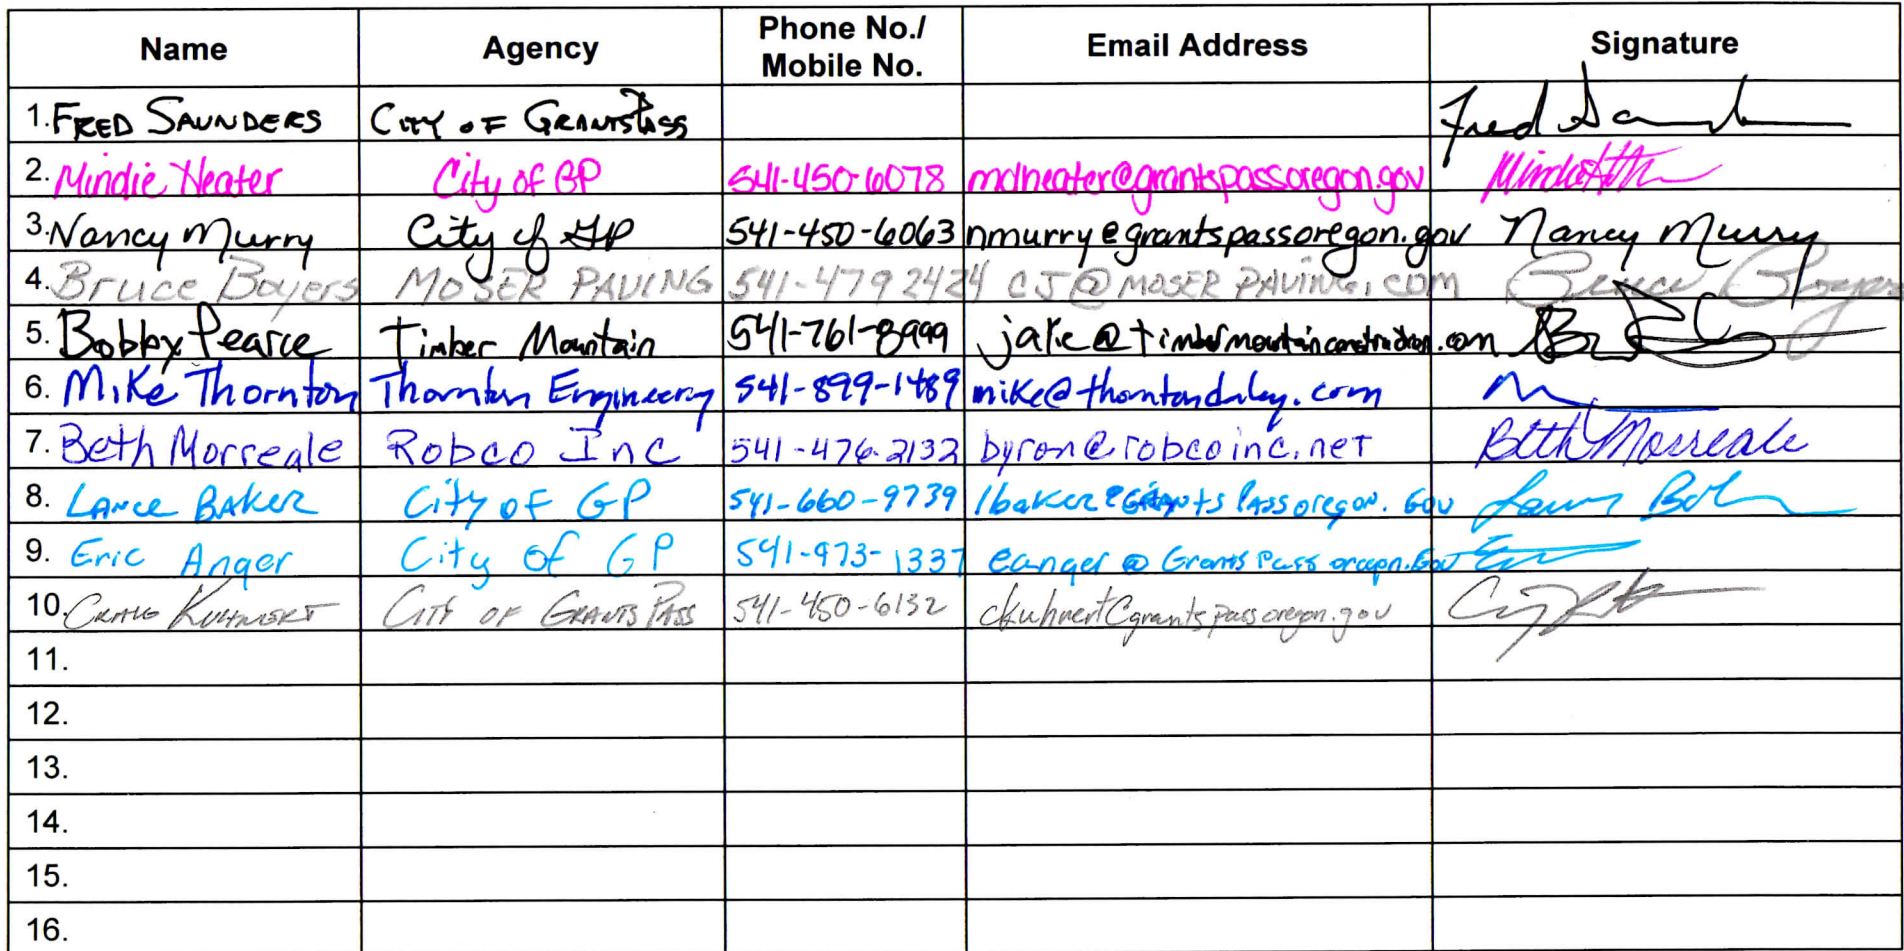 Name Agency Phone No./ Mobile No. Email Address Signature
1. FRED SAUNDERS CITY OF GRANTS PASS Fred
2. Mindie Heater City of GP 541-450-6078 mdheater@grantspassoregon.gov
3. Nancy Murry City of GP 541-450-6063 nmurry@grantspassoregon.gov Nancy Murry
4. Bruce Boyers MOSER PAVING 541-479 2424 CJ@MOSER PAVING.COM Bruce Boyers
5. Bobby Pearce Timber Mountain 541-761-8999 jake@timbermountainconstruction.com
6. Mike Thornton Thornton Engineering 541-899-1489 mike@thorntondaley.com
7. Beth Morreale Robco Inc 541-476-2132 byron@robcoinc.net Beth Morreale
8. LANCE BAKER City OF GP 541-660-9739 lbaker@GRANTS PASS oregon.GOV
9. Eric Anger City of GP 541-973-1337 eanger@Grants Pass oregon.Gov
10. CRAIG KUHNERT CITY OF GRANTS PASS 541-450-6132 ckuhnert@grantspassoregon.gov
11.
12.
13.
14.
15.
16.